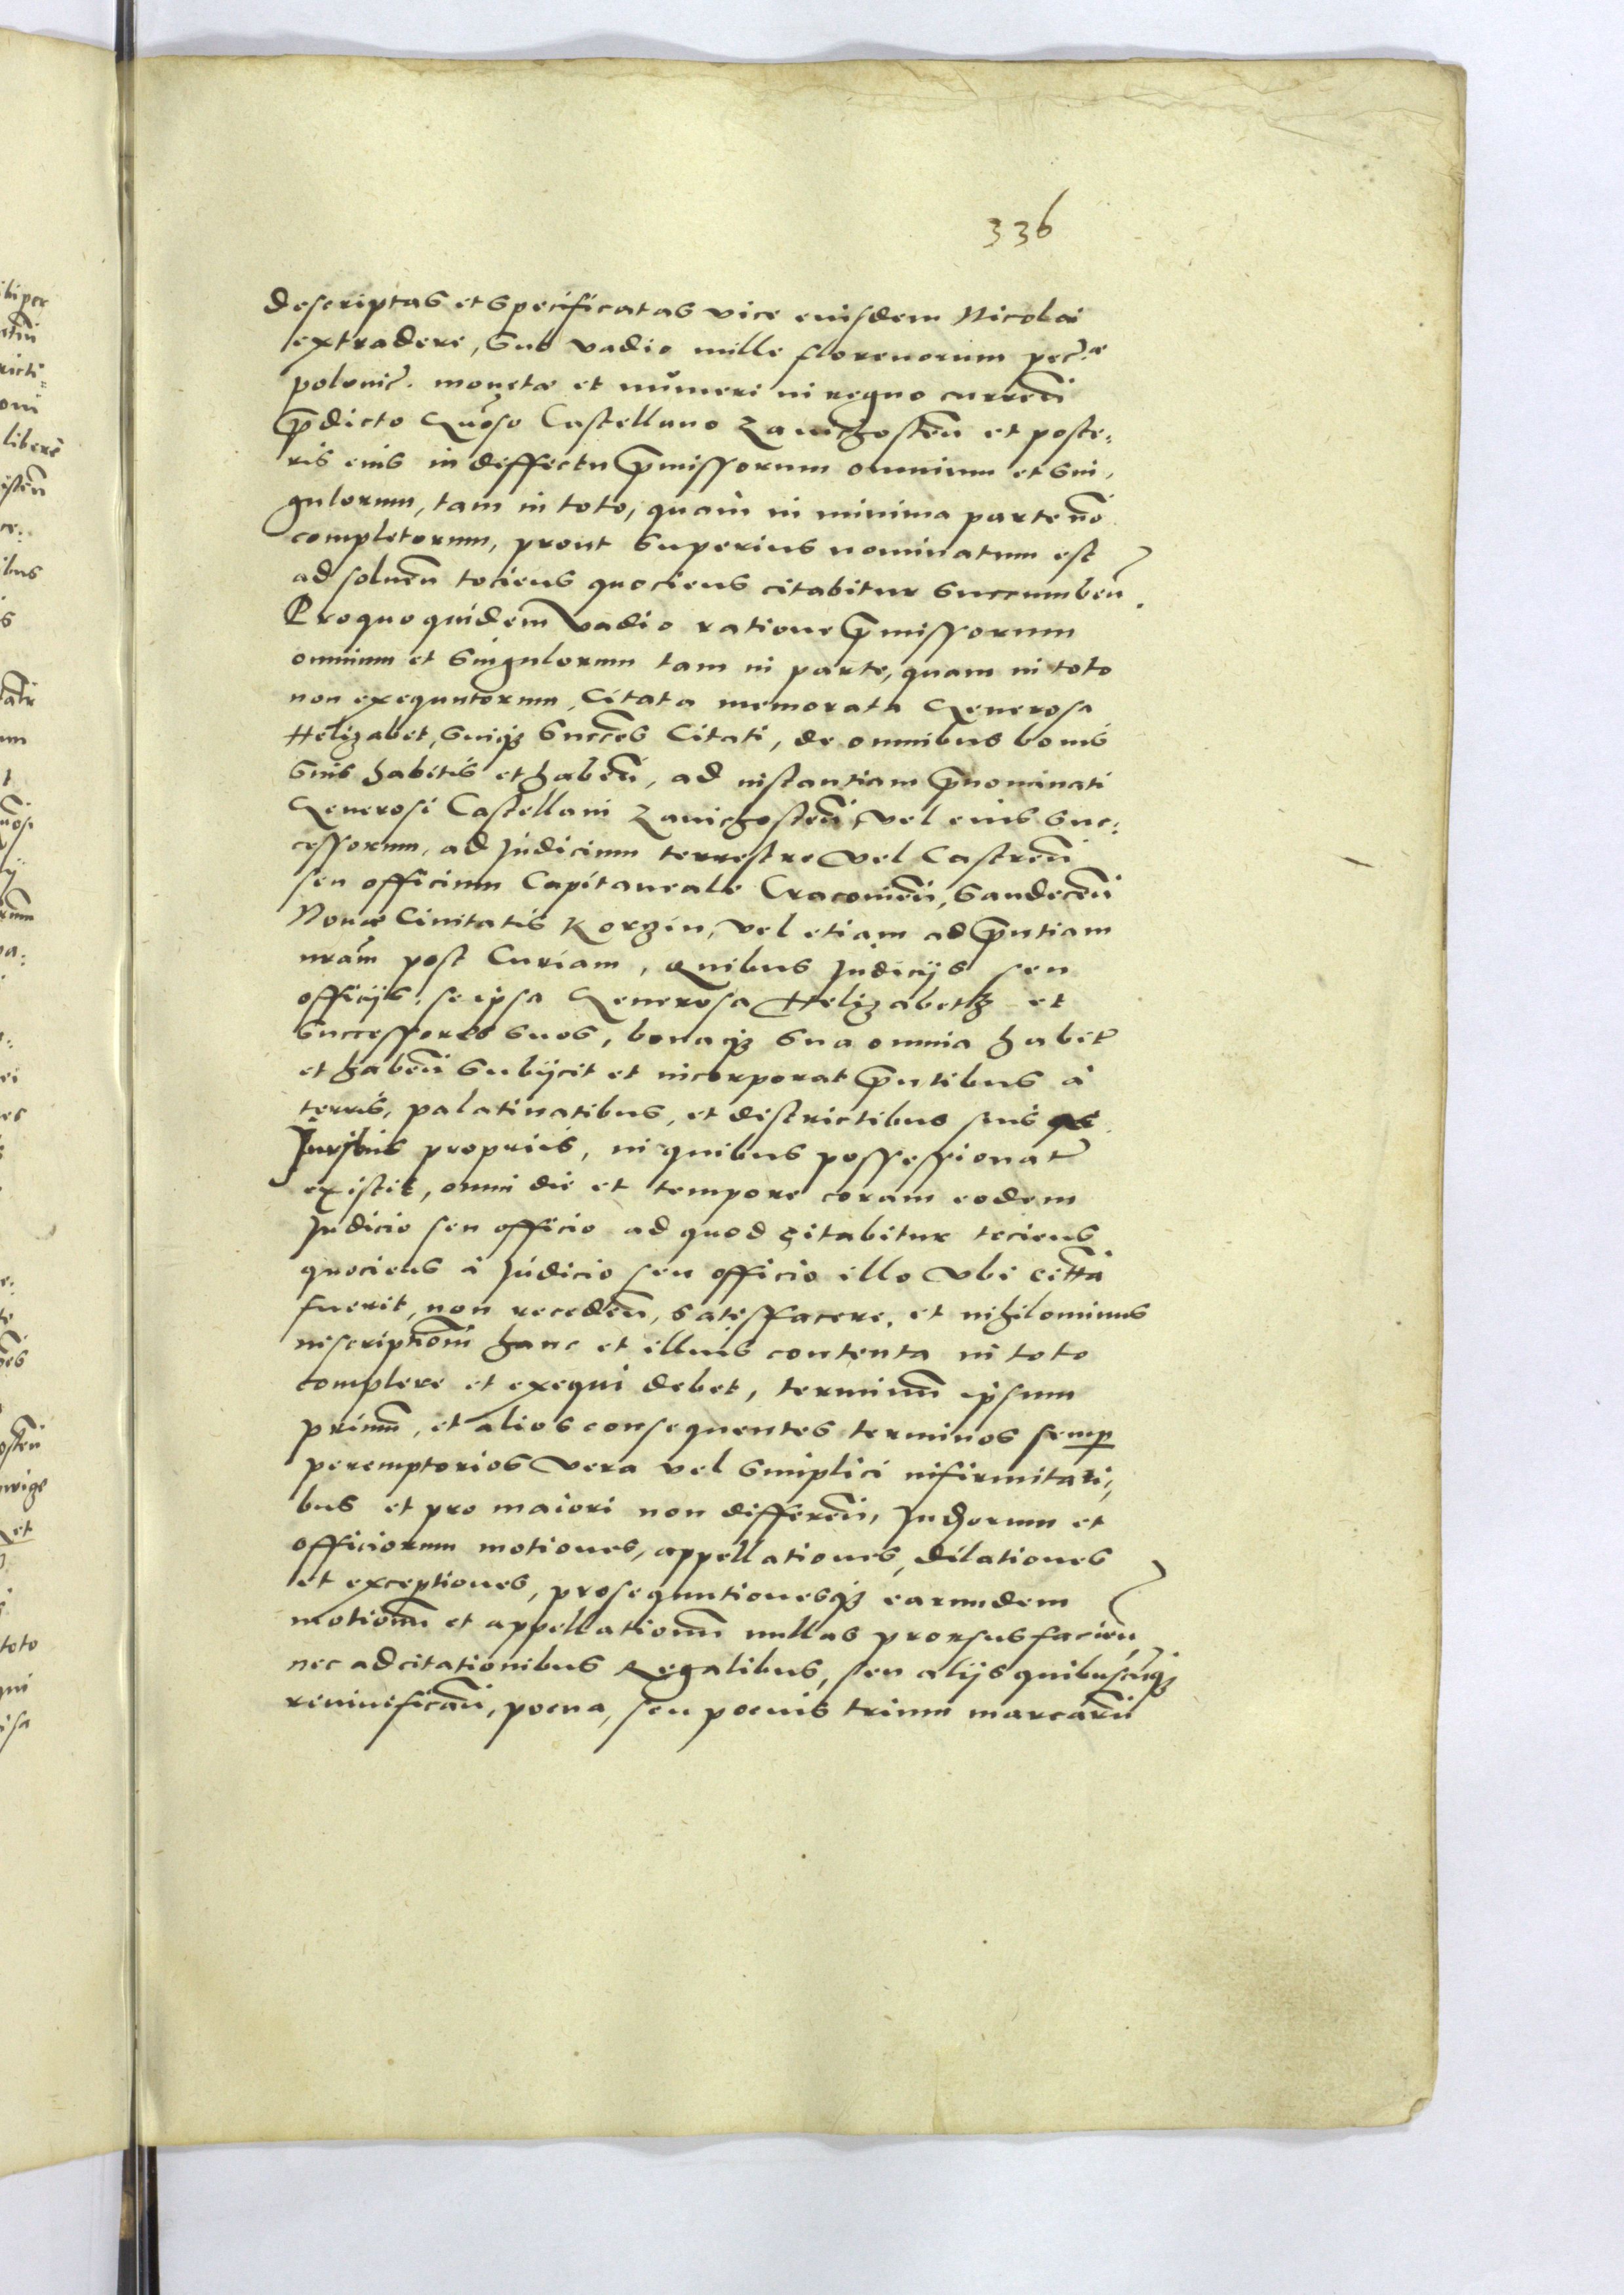 336
descriptas et specificatas vice eiusdem Nicolai
extradere, sub vadio mille florenorum pec:æ
polonic. monetæ et numeri in regno curren̄
p̄dicto Gn̄oso Castellano Zawichosten̄ et poste:
ris eius in deffectu p̄missorum omnium et sin,
gulorum, tam in toto, quam in minima parte nō
completorum, prout superius nominatum est
ad soluen̄ tociens quociens citabitur succumben̄.
Pro quo quidem vadio ratione p̄missorum
omnium et singulorum tam in parte, quam in toto
non exequutorum, Citata memorata Generosa
Helizabet, suiqȝ succes̄ Citati, de omnibus bonis
suis habitis et haben̄, ad instantiam p̄nominati
Generosi Castellani Zawichosten̄, vel eius suc:
cessorum, ad Judicium terrestre vel Castren̄
seu officium Capitaneale Cracouien̄, Sandecen̄
Nouæ Ciuitatis Korzin, vel etiam ad p̄ntiam
nrām post Curiam, quibus Judicijs seu
officijs, se ipsa Generosa Helizabeth et
successores suos, bonaqȝ sua omnia habit̄
et haben̄ subijcit et incorporat p̄ntibus à
terris, palatinatibus, et districtibus suis
Juribus proprijs, in quibus possessionat̄
existit, omni die et tempore coram eodem
Judicio seu officio ad quod citabitur tociens
quociens à Judicio seu officio illo vbi citta
fuerit, non receden̄, satisfacere, et nihilominus
inscriptionm̄ hanc et illius contenta in toto
complere et exequi debet, terminum̄ ipsum
primum̄, et alios consequentes terminos semp
peremptorios vera vel simplici infirmitati,
bus et pro maiori non differen̄, Judiorum et
officiorum motiones, appellationes, dilationes
et exceptiones, prosequutionesqȝ earumdem
motionum̄ et appellationum̄ nullas prorsus facien̄,
nec adcitationibus Regalibus, seu alijs quibuscūqȝ
reiuificān̄, poena, seu poenis trium marcarūm